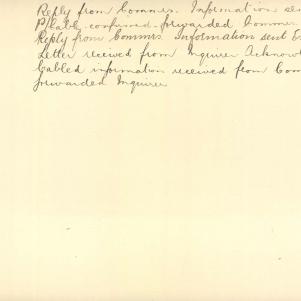 Reply from Commrs. Information sen
P/Card confirmed forwarded Commr
Reply from Commrs. Information sent E
Letter received from Inquirer Acknow
Cabled information received from Com
forwarded Inquirer